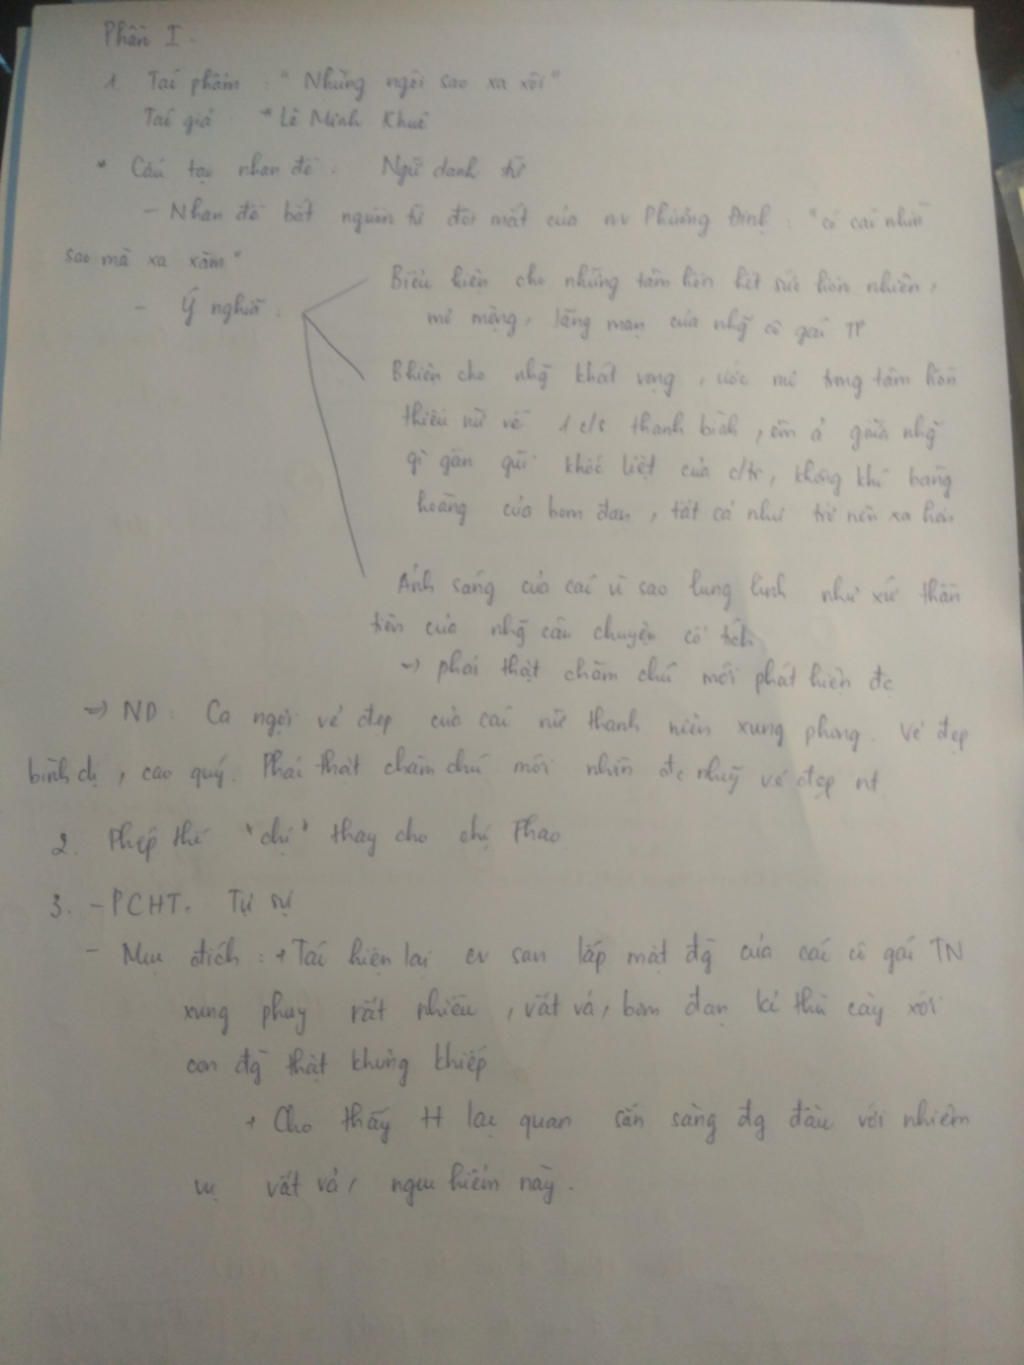 Phần I.
1. Tác phẩm : " Những ngôi sao xa xôi "
Tác giả * Lê Minh Khuê
* Cấu tạo nhan đề : Ngữ danh từ
- Nhan đề bắt nguồn từ đôi mắt của nv Phương Định : " có cái nhìn
sao mà xa xăm "
- Ý nghĩa :
Biểu hiện cho những tâm hồn hết sức hồn nhiên,
mơ mộng, lãng mạn của nhg̃ cô gái TP
B hiện cho nhg̃ khát vọng , ước mơ trong tâm hồn
thiếu nữ về 1 c/s thanh bình , êm ả giữa nhg̃
gì gần gũi khốc liệt của c/tr, không khí bàng
hoàng của bom đạn , tất cả như trở nên xa hơn
Ánh sáng của các vì sao lung linh như xứ thần
tiên của nhg̃ câu chuyện cổ tích
-> phải thật chăm chú mới phát hiện đc
=> ND : Ca ngợi vẻ đẹp của các nữ thanh niên xung phong. Vẻ đẹp
bình dị , cao quý. Phải thật chăm chú mới nhìn đc nhữg vẻ đẹp nt
2. Phép thế " chị " thay cho chị Thao
3. - PCHT. Tự sự
- Mục đích : + Tái hiện lại cv san lấp mặt đg̀ của các cô gái TN
xung phong rất nhiều , vất vả, bom đạn kẻ thù cày xới
con đg̀ thật khủng khiếp
+ Cho thấy tt lạc quan sẵn sàng đg đầu với nhiệm
vụ vất vả, nguy hiểm này.